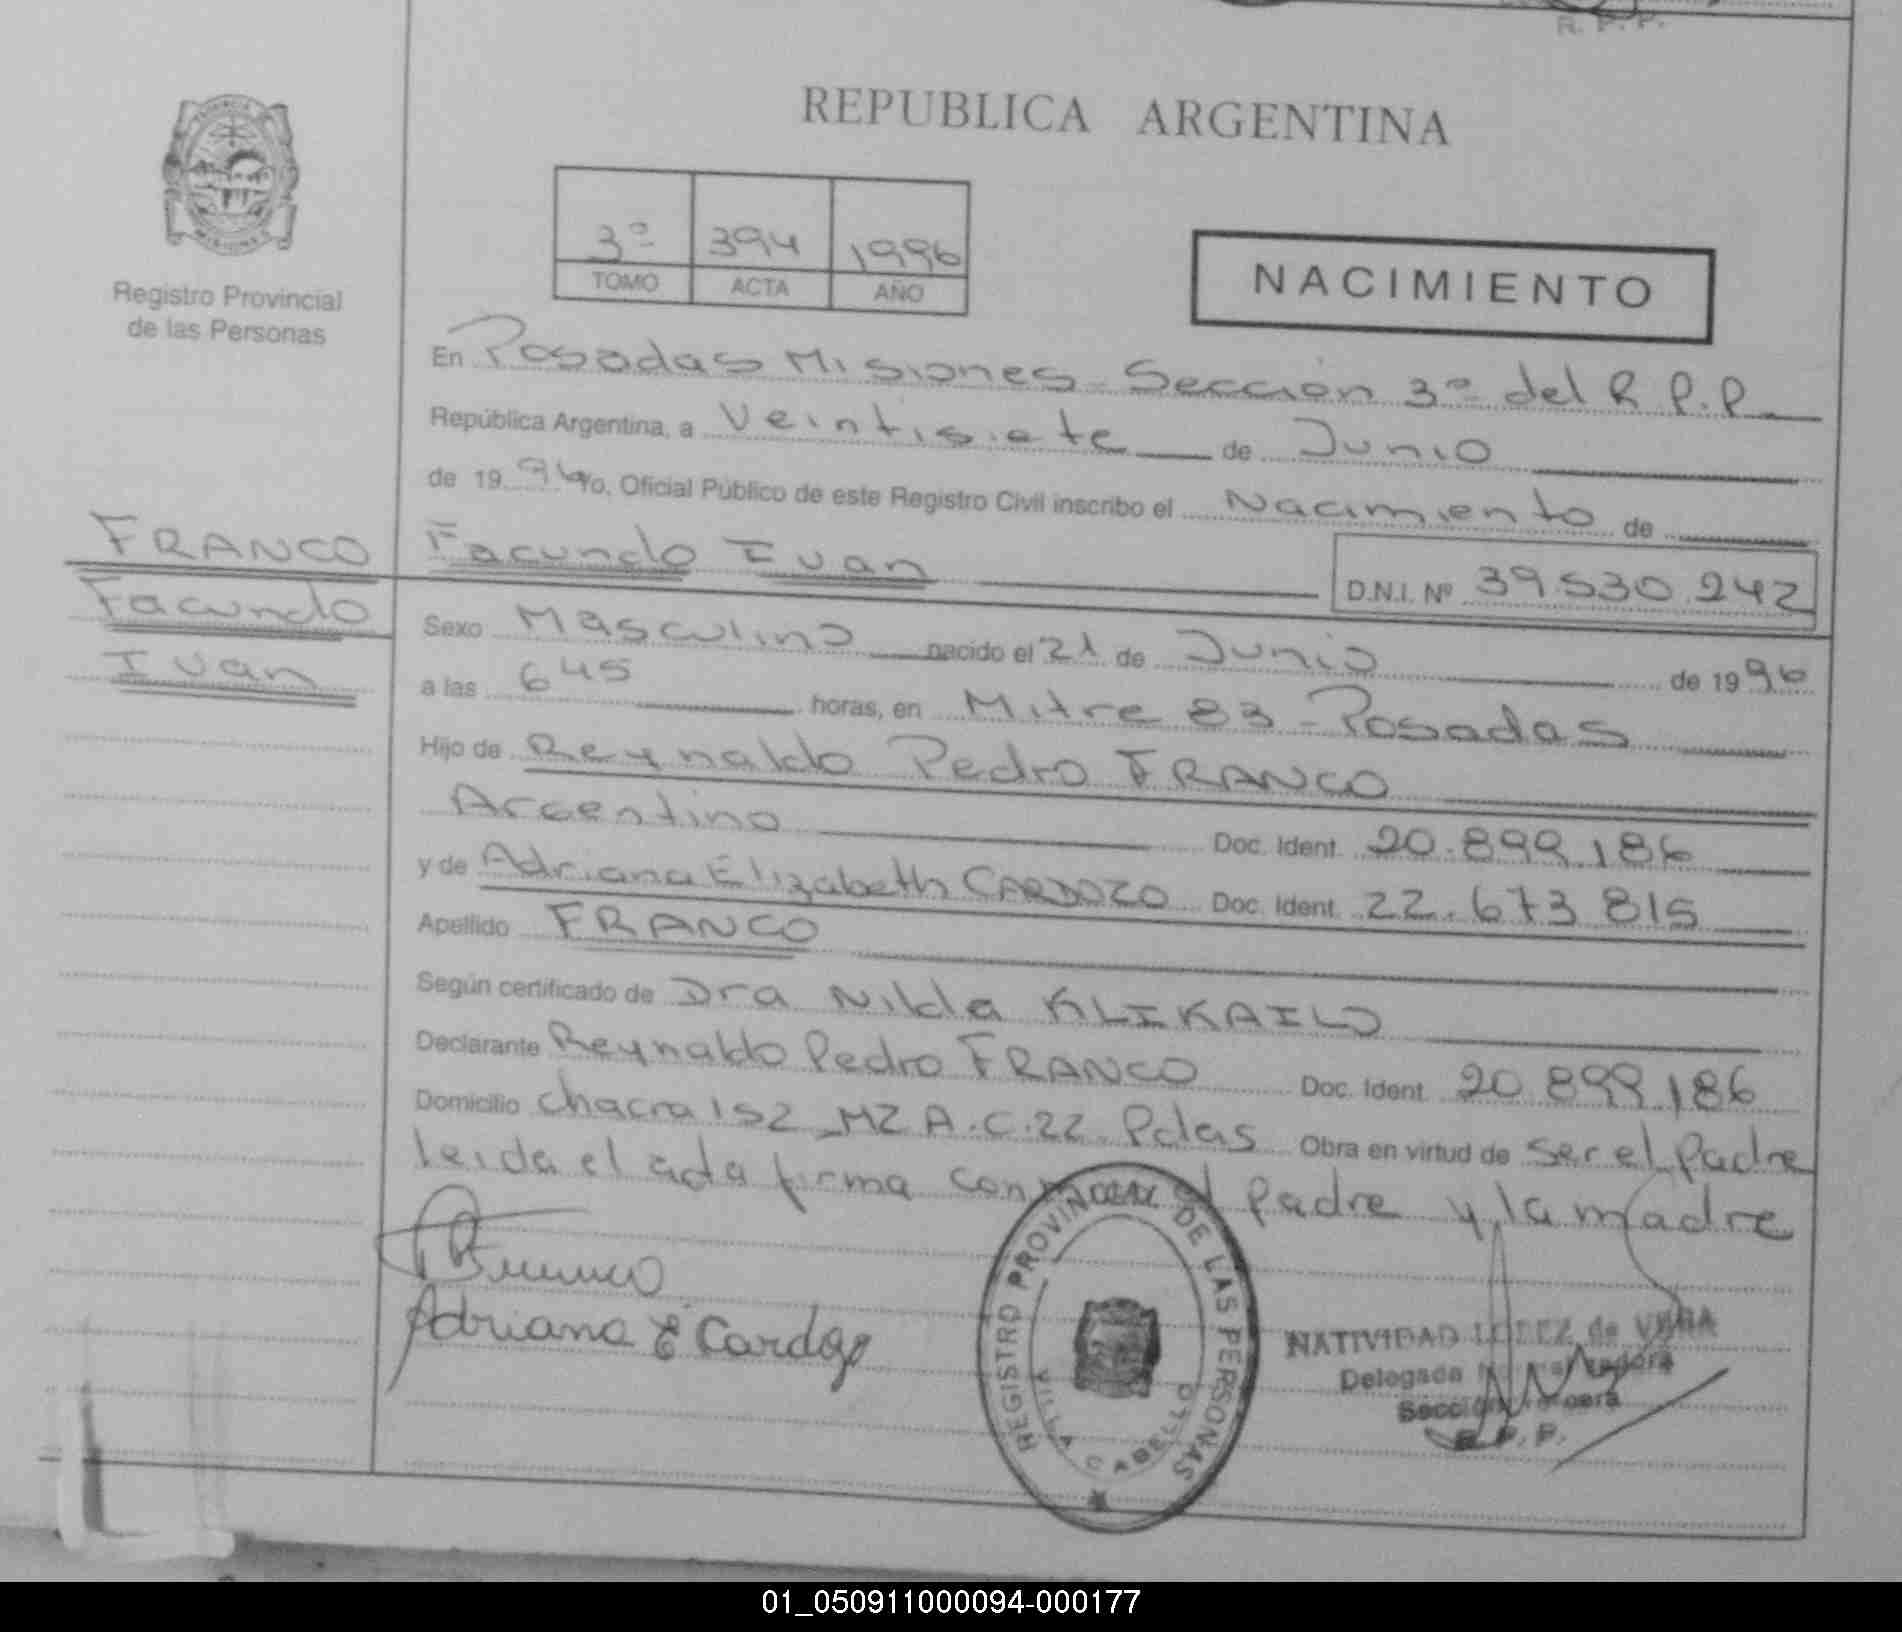 R. P. P.
REPUBLICA ARGENTINA
Registro Provincial
de las Personas
3º 394 1996
TOMO ACTA AÑO
NACIMIENTO
En Posadas Misiones Sección 3º del R P.P
República Argentina, a Veintisiete de Junio
de 19 96 Yo, Oficial Público de este Registro Civil inscribo el Nacimiento de
FRANCO
Facundo
Ivan
Facundo Ivan D.N.I. Nº 39.530.242
Sexo Masculino nacido el 21 de Junio de 1996
a las 645 horas, en Mitre 83 - Posadas
Hijo de Reynaldo Pedro FRANCO
Argentino Doc. Ident. 20.899.186
y de Adriana Elizabeth CARDOZO Doc. Ident. 22.673 815
Apellido FRANCO
Según certificado de Dra Nilda KLIKAILO
Declarante Reynaldo Pedro FRANCO Doc. Ident. 20.899.186
Domicilio Chacra 152 MZ A.C.22. Pdas Obra en virtud de Ser el Padre
leida el acta firma con el Padre y la madre
Adriana E Cardozo
REGISTRO PROVINCIAL DE LAS PERSONAS
VILLA CABELLO
NATIVIDAD LOPEZ de VERA
Delegada
Sección
R. P. P.
01_050911000094-000177